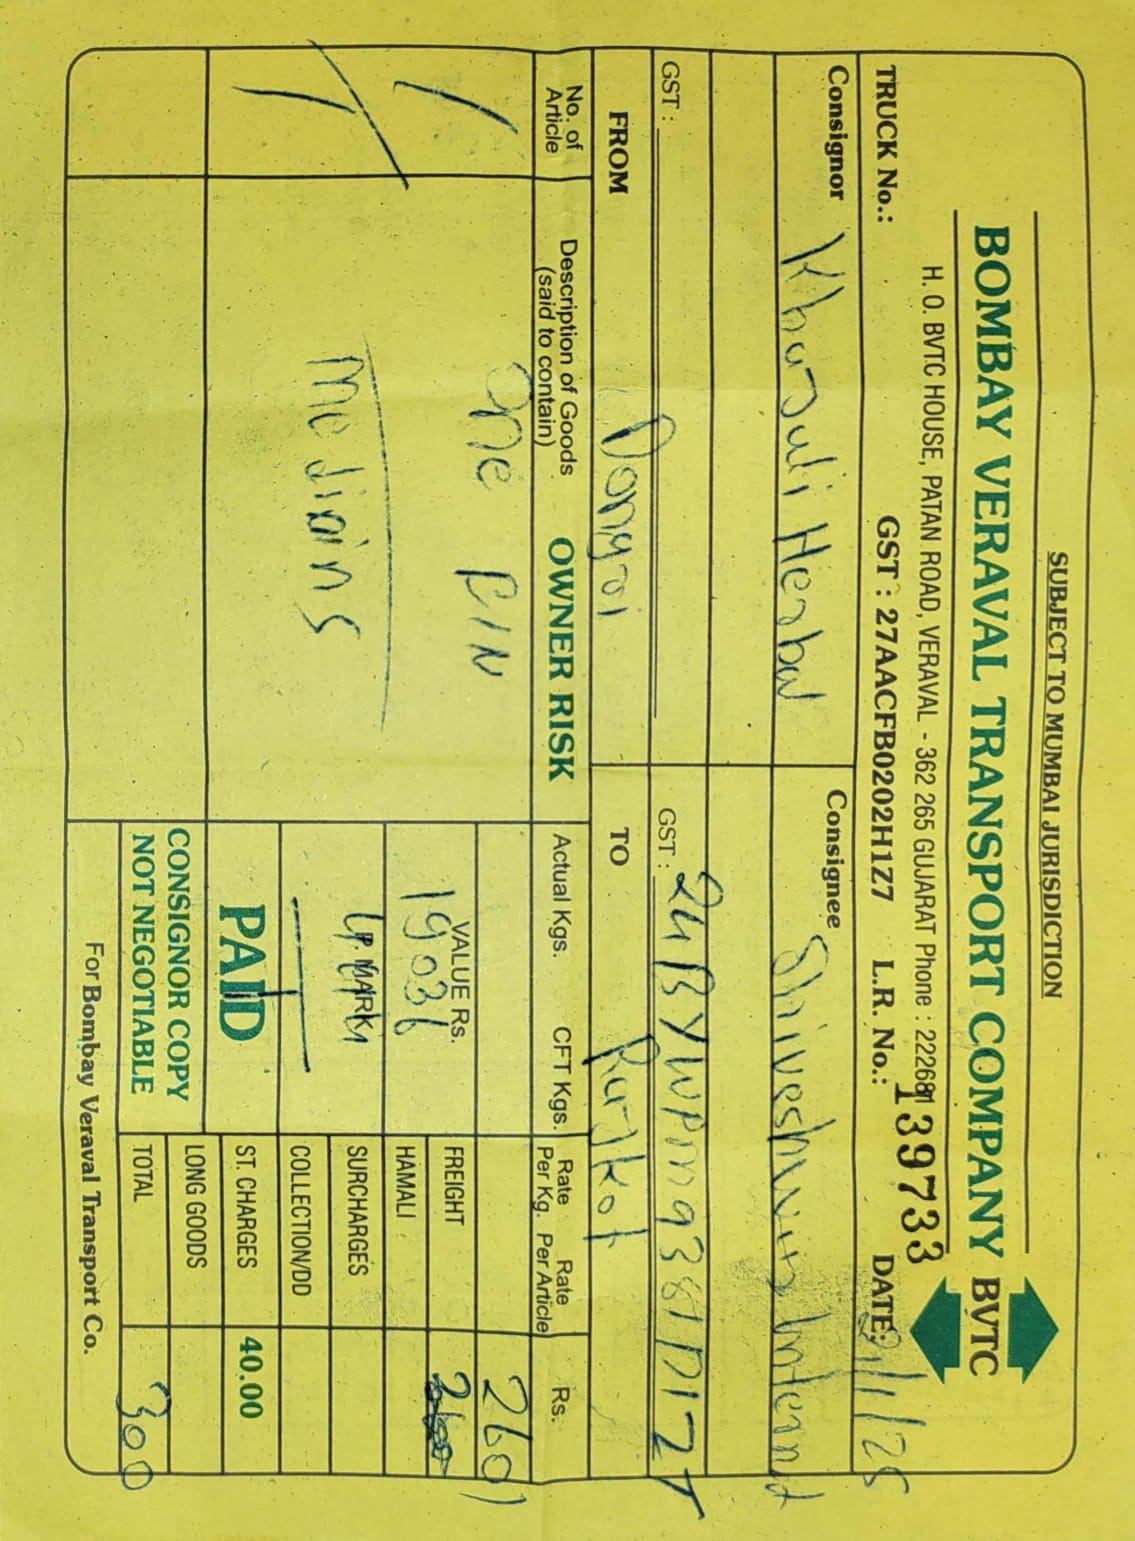 SUBJECT TO MUMBAI JURISDICTION
BOMBAY VERAVAL TRANSPORT COMPANY BVTC
H. O. BVTC HOUSE, PATAN ROAD, VERAVAL - 362 265 GUJARAT Phone : 222681
TRUCK No.: GST : 27AACFB0202H1Z7 L.R. No.: 139733 DATE: /1/25
Consignor Kharsuli Herbal Consignee
GST : GST : 24BYWPM9381D1Z
FROM Dongri TO Rajkot
No. of Article Description of Goods (said to contain) OWNER RISK Actual Kgs. CFT Kgs. Rate Per Kg. Rate Per Article Rs.
1 One 260
VALUE Rs. 19036 FREIGHT
HAMALI
P. MARK SURCHARGES
COLLECTION/DD
PAID ST. CHARGES 40.00
CONSIGNOR COPY LONG GOODS
NOT NEGOTIABLE TOTAL 300
For Bombay Veraval Transport Co.